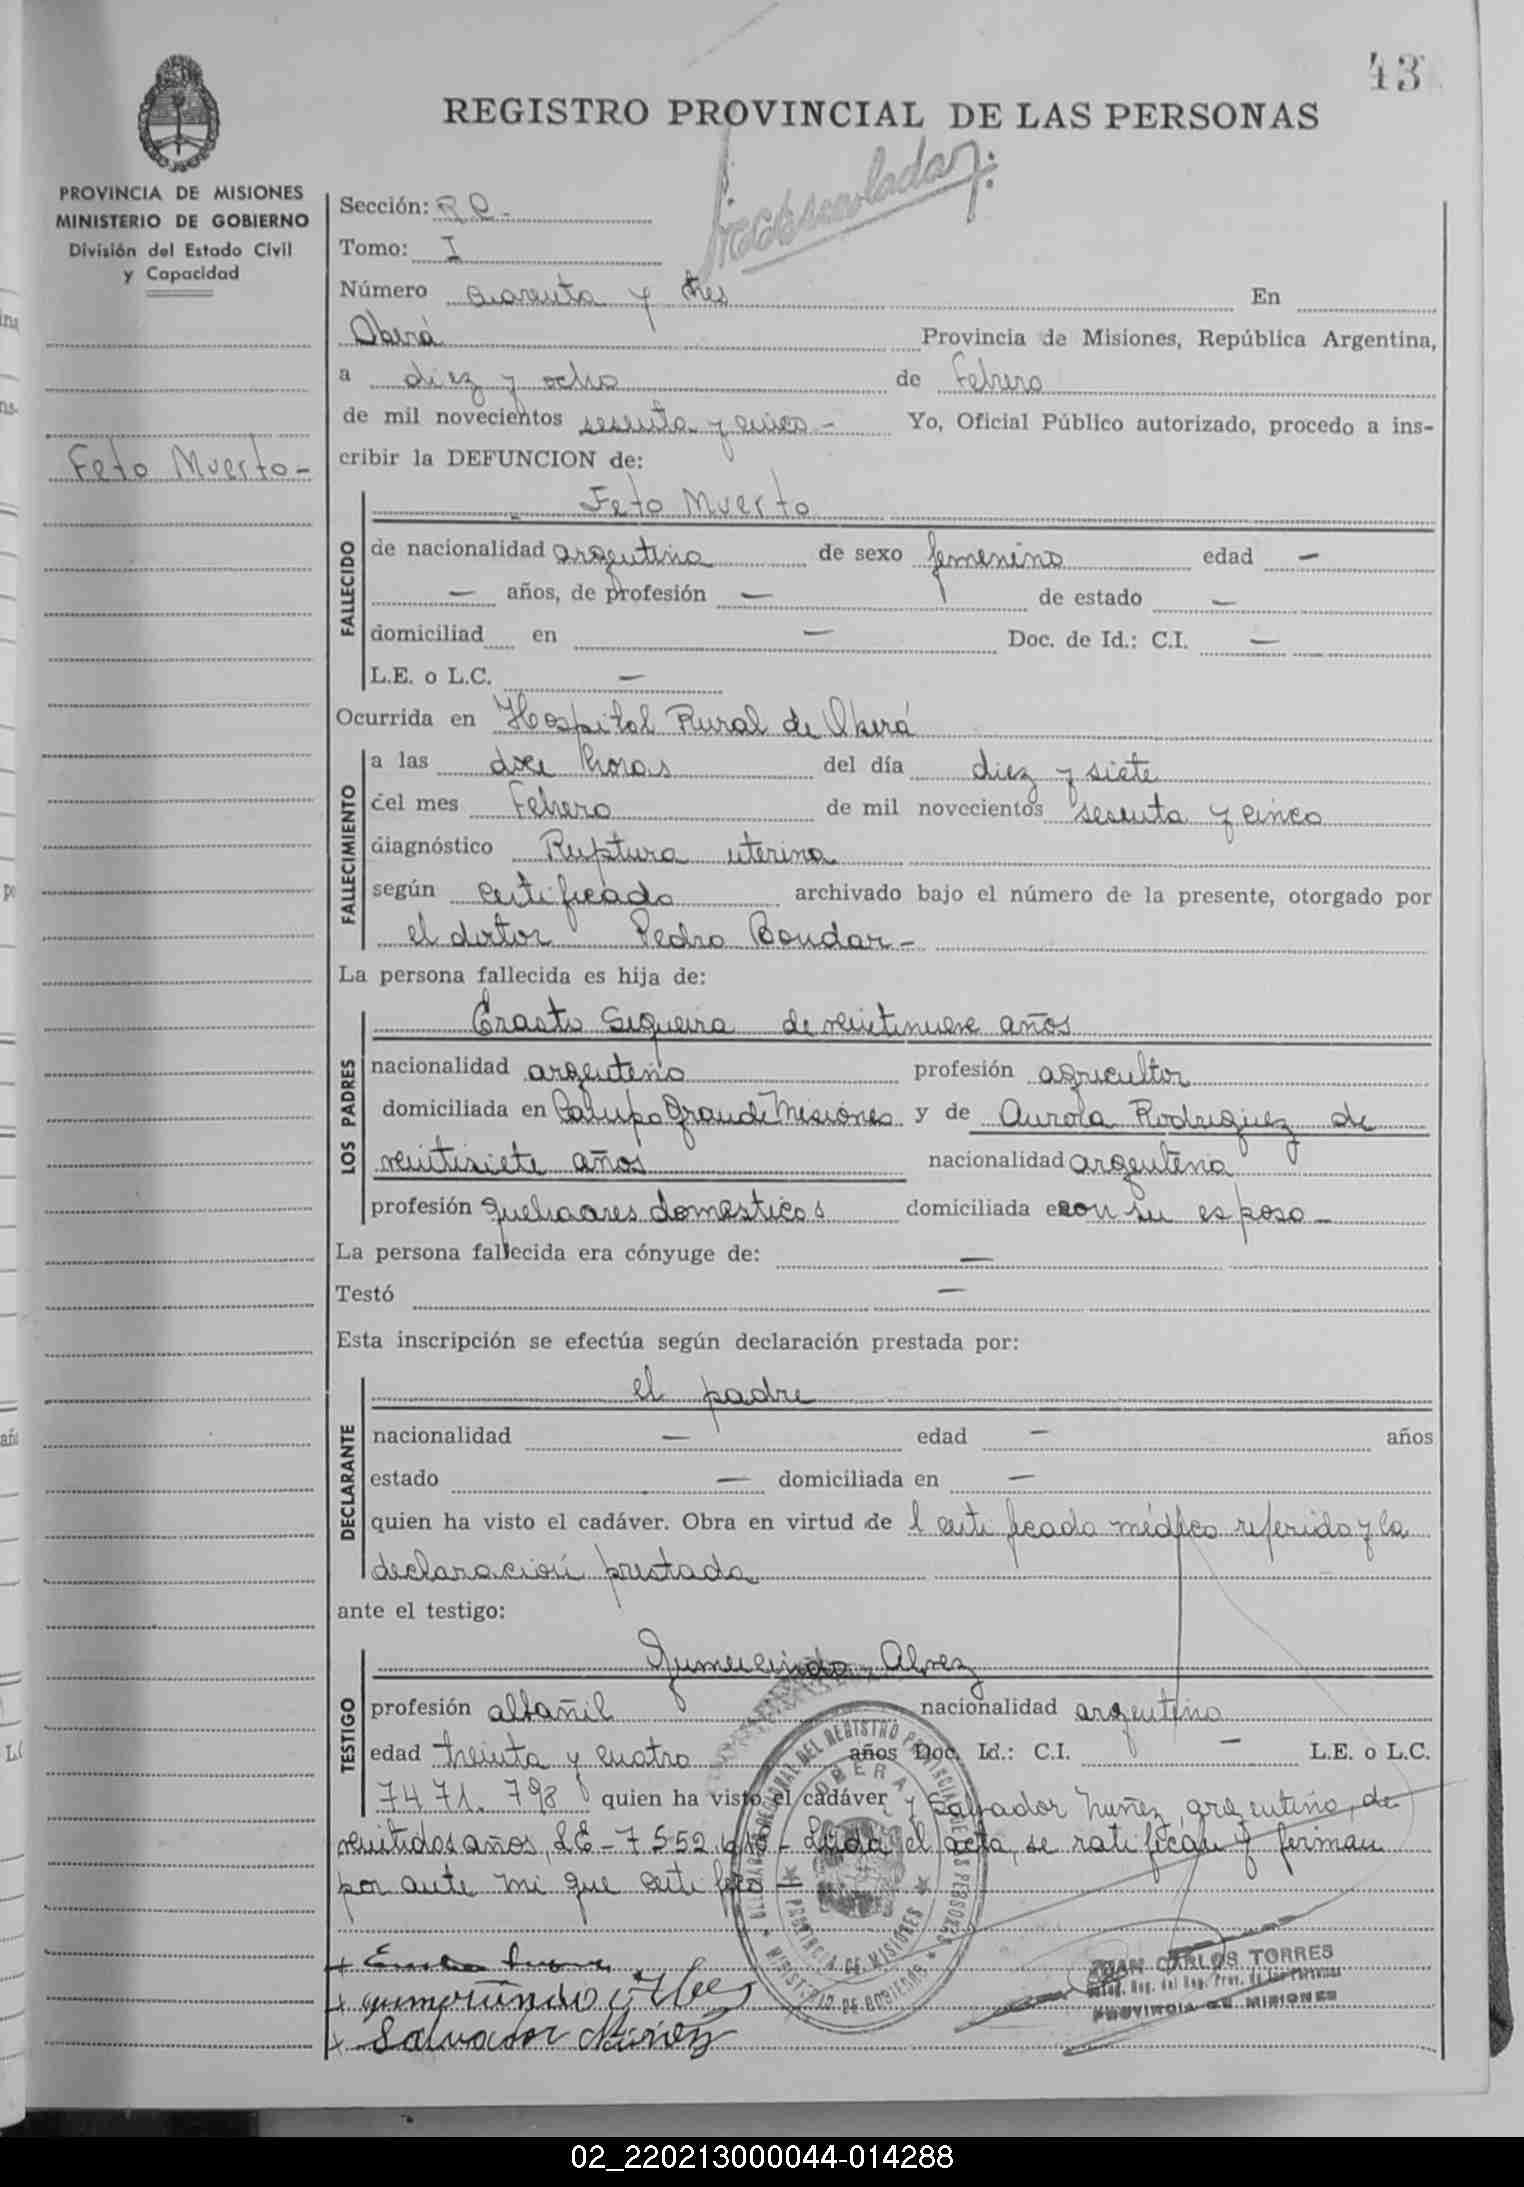 43
REGISTRO PROVINCIAL DE LAS PERSONAS
PROVINCIA DE MISIONES
MINISTERIO DE GOBIERNO
División del Estado Civil
y Capacidad
Sección: R D -
Tomo: I
Número cuarenta y tres En
Oberá Provincia de Misiones, República Argentina,
a diez y ocho de Febrero
de mil novecientos sesenta y cinco - Yo, Oficial Público autorizado, procedo a ins-
cribir la DEFUNCION de:
Feto Muerto -
Feto Muerto
FALLECIDO
de nacionalidad argentina de sexo femenino edad —
— años, de profesión — de estado —
domiciliad en — Doc. de Id.: C.I. —
L.E. o L.C. —
Ocurrida en Hospital Rural de Oberá
FALLECIMIENTO
a las doce horas del día diez y siete
del mes Febrero de mil novecientos sesenta y cinco
diagnóstico Ruptura uterina
según certificado archivado bajo el número de la presente, otorgado por
el doctor Pedro Bondar -
La persona fallecida es hija de:
LOS PADRES
Erasto Sequeira de veintinueve años
nacionalidad argentino profesión agricultor
domiciliada en Campo Grande Misiones y de Aurora Rodriguez de
veintisiete años nacionalidad argentina
profesión quehaceres domesticos domiciliada con su esposo -
La persona fallecida era cónyuge de: —
Testó —
Esta inscripción se efectúa según declaración prestada por:
DECLARANTE
el padre
nacionalidad — edad — años
estado — domiciliada en —
quien ha visto el cadáver. Obra en virtud de l certificado médico referido y la
declaración prestada
ante el testigo:
TESTIGO
Gumercindo Alvez
profesión albañil nacionalidad argentino
edad treinta y cuatro años Doc. Id.: C.I. — L.E. o L.C.
7471.798 quien ha visto el cadáver y Salvador Nuñez, argentino, de
veintidos años, LE - 7552 - Leida el acta, se ratifican y firman
por ante mi que certifico -
DELEGACION REGIONAL DEL REGISTRO PROVINCIAL DE LAS PERSONAS
OBERA
PROVINCIA DE MISIONES
MINISTERIO DE GOBIERNO
Salvador Nuñez
JUAN CARLOS TORRES
Deleg. Reg. del Reg. Prov. de las Personas
PROVINCIA DE MISIONES
02_220213000044-014288